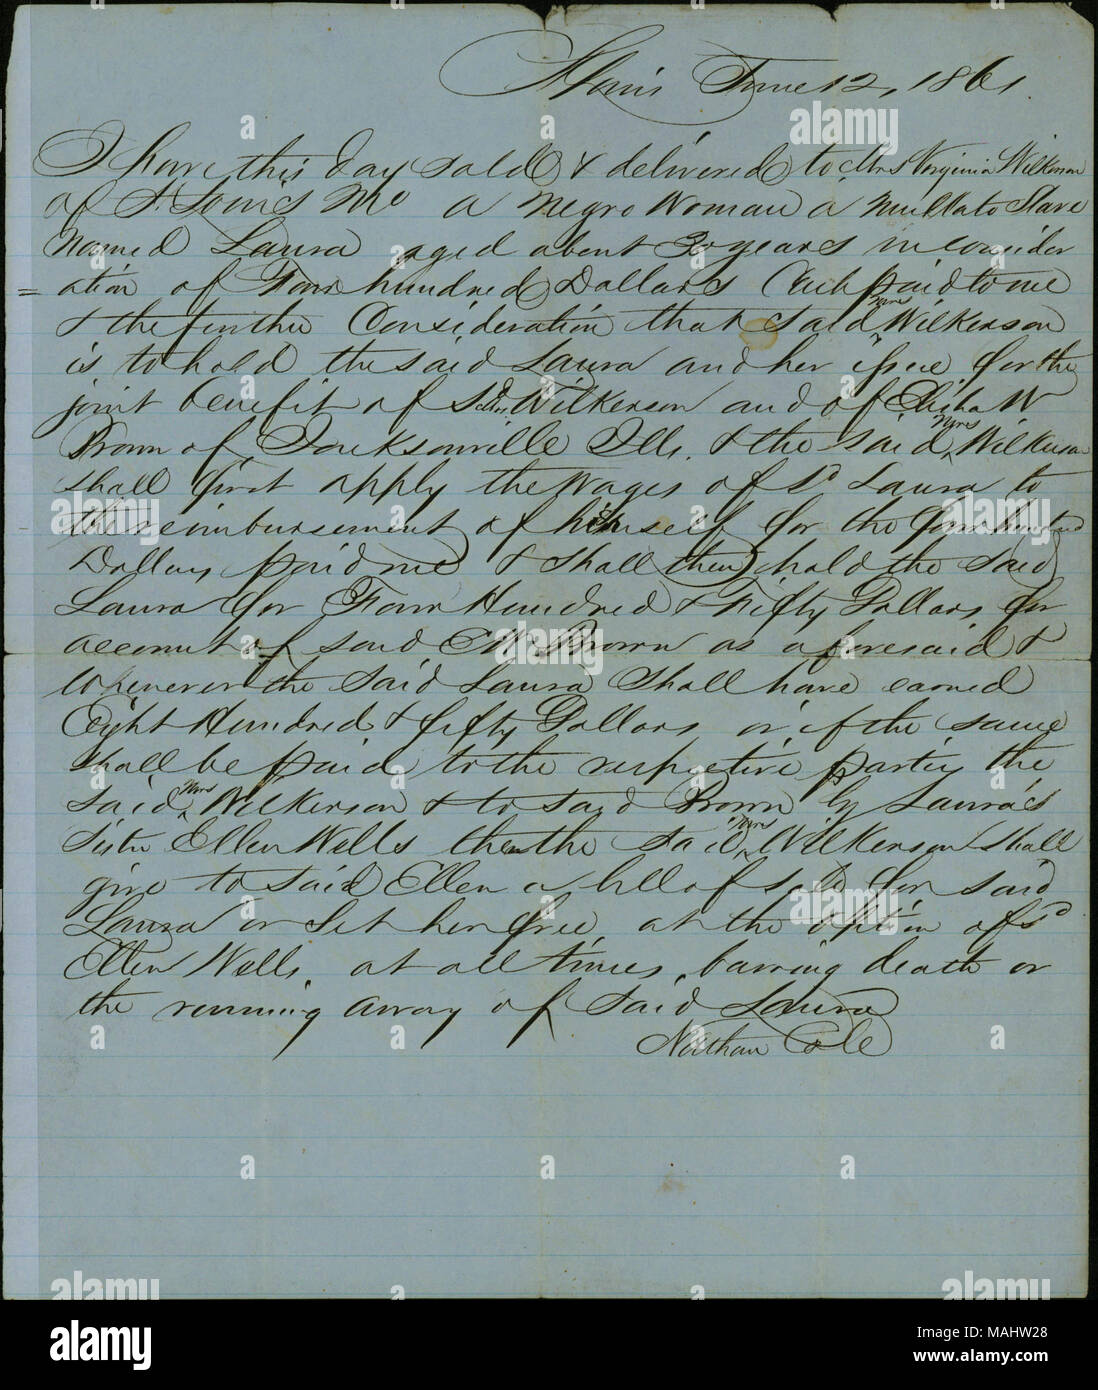 St Louis June 12, 1861
I have this day sold & delivered to Mrs Virginia Wilkerson
of St. Louis Mo a negro Woman a mullato Slave
named Laura aged about 30 years in consider
ation of Four hundred Dollars Cash paid to me
& the further Consideration that said Mrs Wilkerson
is to hold the said Laura and her for the
joint benefit of Sd Mrs Wilkerson and of Elisha W
Brown of Jacksonville Ills. & the said Mrs Wilkerson
shall first apply the wages of sd Laura to
the reimbursement of herself for the four hundred
Dollars paid me & shall then hold the said
Laura for Four Hundred & Fifty Dollars for
account of said E W Brown as aforesaid &
Whenever the said Laura shall have earned
Eight Hundred & fifty Dollars or if the same
shall be paid to the respective parties the
said Mrs Wilkerson & to said Brown by Laura's
sister Ellen Wells then the said Mrs Wilkerson shall
give to said Ellen a bill of sale for said
Laura or Set her free at the option of sd
Ellen Wells. at all times, barring death or
the running away of said Laura
Nathan Cole
a alamy
alamy
Image ID: MAHW28
www.alamy.com